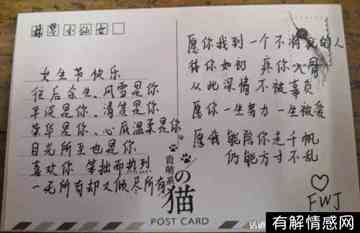 女生节快乐
往后余生、风雪是你
平淡是你、清贫是你
荣华是你、心底温柔是你
目光所至也是你
喜欢你 笨拙而热烈
一无所有却又倾尽所有
愿你找到一个不将就的人
待你如初 疼你入骨
从此深情不被辜负
愿你一生努力 一生被爱
愿我能陪你走千帆
仍能方寸不乱
FWJ
の猫
POST CARD
有解情感网